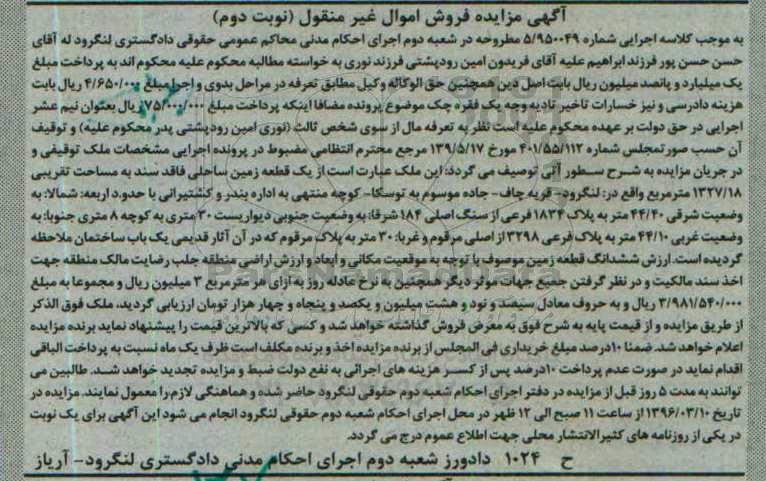 آگهی مزایده فروش اموال غیر منقول (نوبت دوم)
به موجب کلاسه اجرایی شماره ۵/۹۵۰۰۴۹ مطروحه در شعبه دوم اجرای احکام مدنی محاکم عمومی حقوقی دادگستری لنگرود له آقای
حسن حسن پور فرزند ابراهیم علیه آقای فریدون امین رودپشتی فرزند نوری به خواسته مطالبه محکوم علیه محکوم اند به پرداخت مبلغ
یک میلیارد و پانصد میلیون ریال بابت اصل دین همچنین حق الوکاله وکیل مطابق تعرفه در مراحل بدوی و اجرا مبلغ ۴/۶۵۰/۰۰۰ ریال بابت
هزینه دادرسی و نیز خسارات تاخیر تادیه وجه یک فقره چک موضوع پرونده مضافا اینکه پرداخت مبلغ ۷۵/۰۰۰/۰۰۰ ریال بعنوان نیم عشر
اجرایی در حق دولت بر عهده محکوم علیه است نظر به تعرفه مال از سوی شخص ثالث (نوری امین رودپشتی پدر محکوم علیه) و توقیف
آن حسب صورتمجلس شماره ۴۰۱/۵۵/۱۱۲ مورخ ۱۳۹/۵/۱۷ مرجع محترم انتظامی مضبوط در پرونده اجرایی مشخصات ملک توقیفی و
در جریان مزایده به شرح سطور آتی توصیف می گردد: این ملک عبارت است از یک قطعه زمین ساحلی فاقد سند به مساحت تقریبی
۱۳۲۷/۱۸ مترمربع واقع در: لنگرود- قریه چاف- جاده موسوم به توسکا- کوچه منتهی به اداره بندر و کشتیرانی با حدود اربعه: شمالا: به
وضعیت شرقی ۴۴/۴۰ متر به پلاک ۱۸۳۴ فرعی از سنگ اصلی ۱۸۴ شرقا: به وضعیت جنوبی دیواریست ۳۰ متری به کوچه ۸ متری جنوبا: به
وضعیت غربی ۴۴/۱۰ متر به پلاک فرعی ۳۲۹۸ از اصلی مرقوم و غربا: ۳۰ متر به پلاک مرقوم که در آن آثار قدیمی یک باب ساختمان ملاحظه
گردیده است. ارزش ششدانگ قطعه زمین موصوف با توجه به موقعیت مکانی و ابعاد و ارزش اراضی منطقه جلب رضایت مالک منطقه جهت
اخذ سند مالکیت و در نظر گرفتن جمیع جهات موثر دیگر همچنین به نرخ عادله روز به ازای هر مترمربع ۳ میلیون ریال و مجموعا به مبلغ
۳/۹۸۱/۵۴۰/۰۰۰ ریال و به حروف معادل سیصد و نود و هشت میلیون و یکصد و پنجاه و چهار هزار تومان ارزیابی گردید، ملک فوق الذکر
از طریق مزایده و از قیمت پایه به شرح فوق به معرض فروش گذاشته خواهد شد و کسی که بالاترین قیمت را پیشنهاد نماید برنده مزایده
اعلام خواهد شد. ضمنا ۱۰درصد مبلغ خریداری فی المجلس از برنده مزایده اخذ و برنده مکلف است ظرف یک ماه نسبت به پرداخت الباقی
اقدام نماید در صورت عدم پرداخت ۱۰درصد پس از کسر هزینه های اجرائی به نفع دولت ضبط و مزایده تجدید خواهد شد. طالبین می
توانند به مدت ۵ روز قبل از مزایده در دفتر اجرای احکام شعبه دوم حقوقی لنگرود حاضر شده و هماهنگی لازم را معمول نمایند. مزایده در
تاریخ ۱۳۹۶/۰۳/۱۰ از ساعت ۱۱ صبح الی ۱۲ ظهر در محل اجرای احکام شعبه دوم حقوقی لنگرود انجام می شود این آگهی برای یک نوبت
در یکی از روزنامه های کثیرالانتشار محلی جهت اطلاع عموم درج می گردد.
ح ۱۰۲۴ دادورز شعبه دوم اجرای احکام مدنی دادگستری لنگرود- آریاز